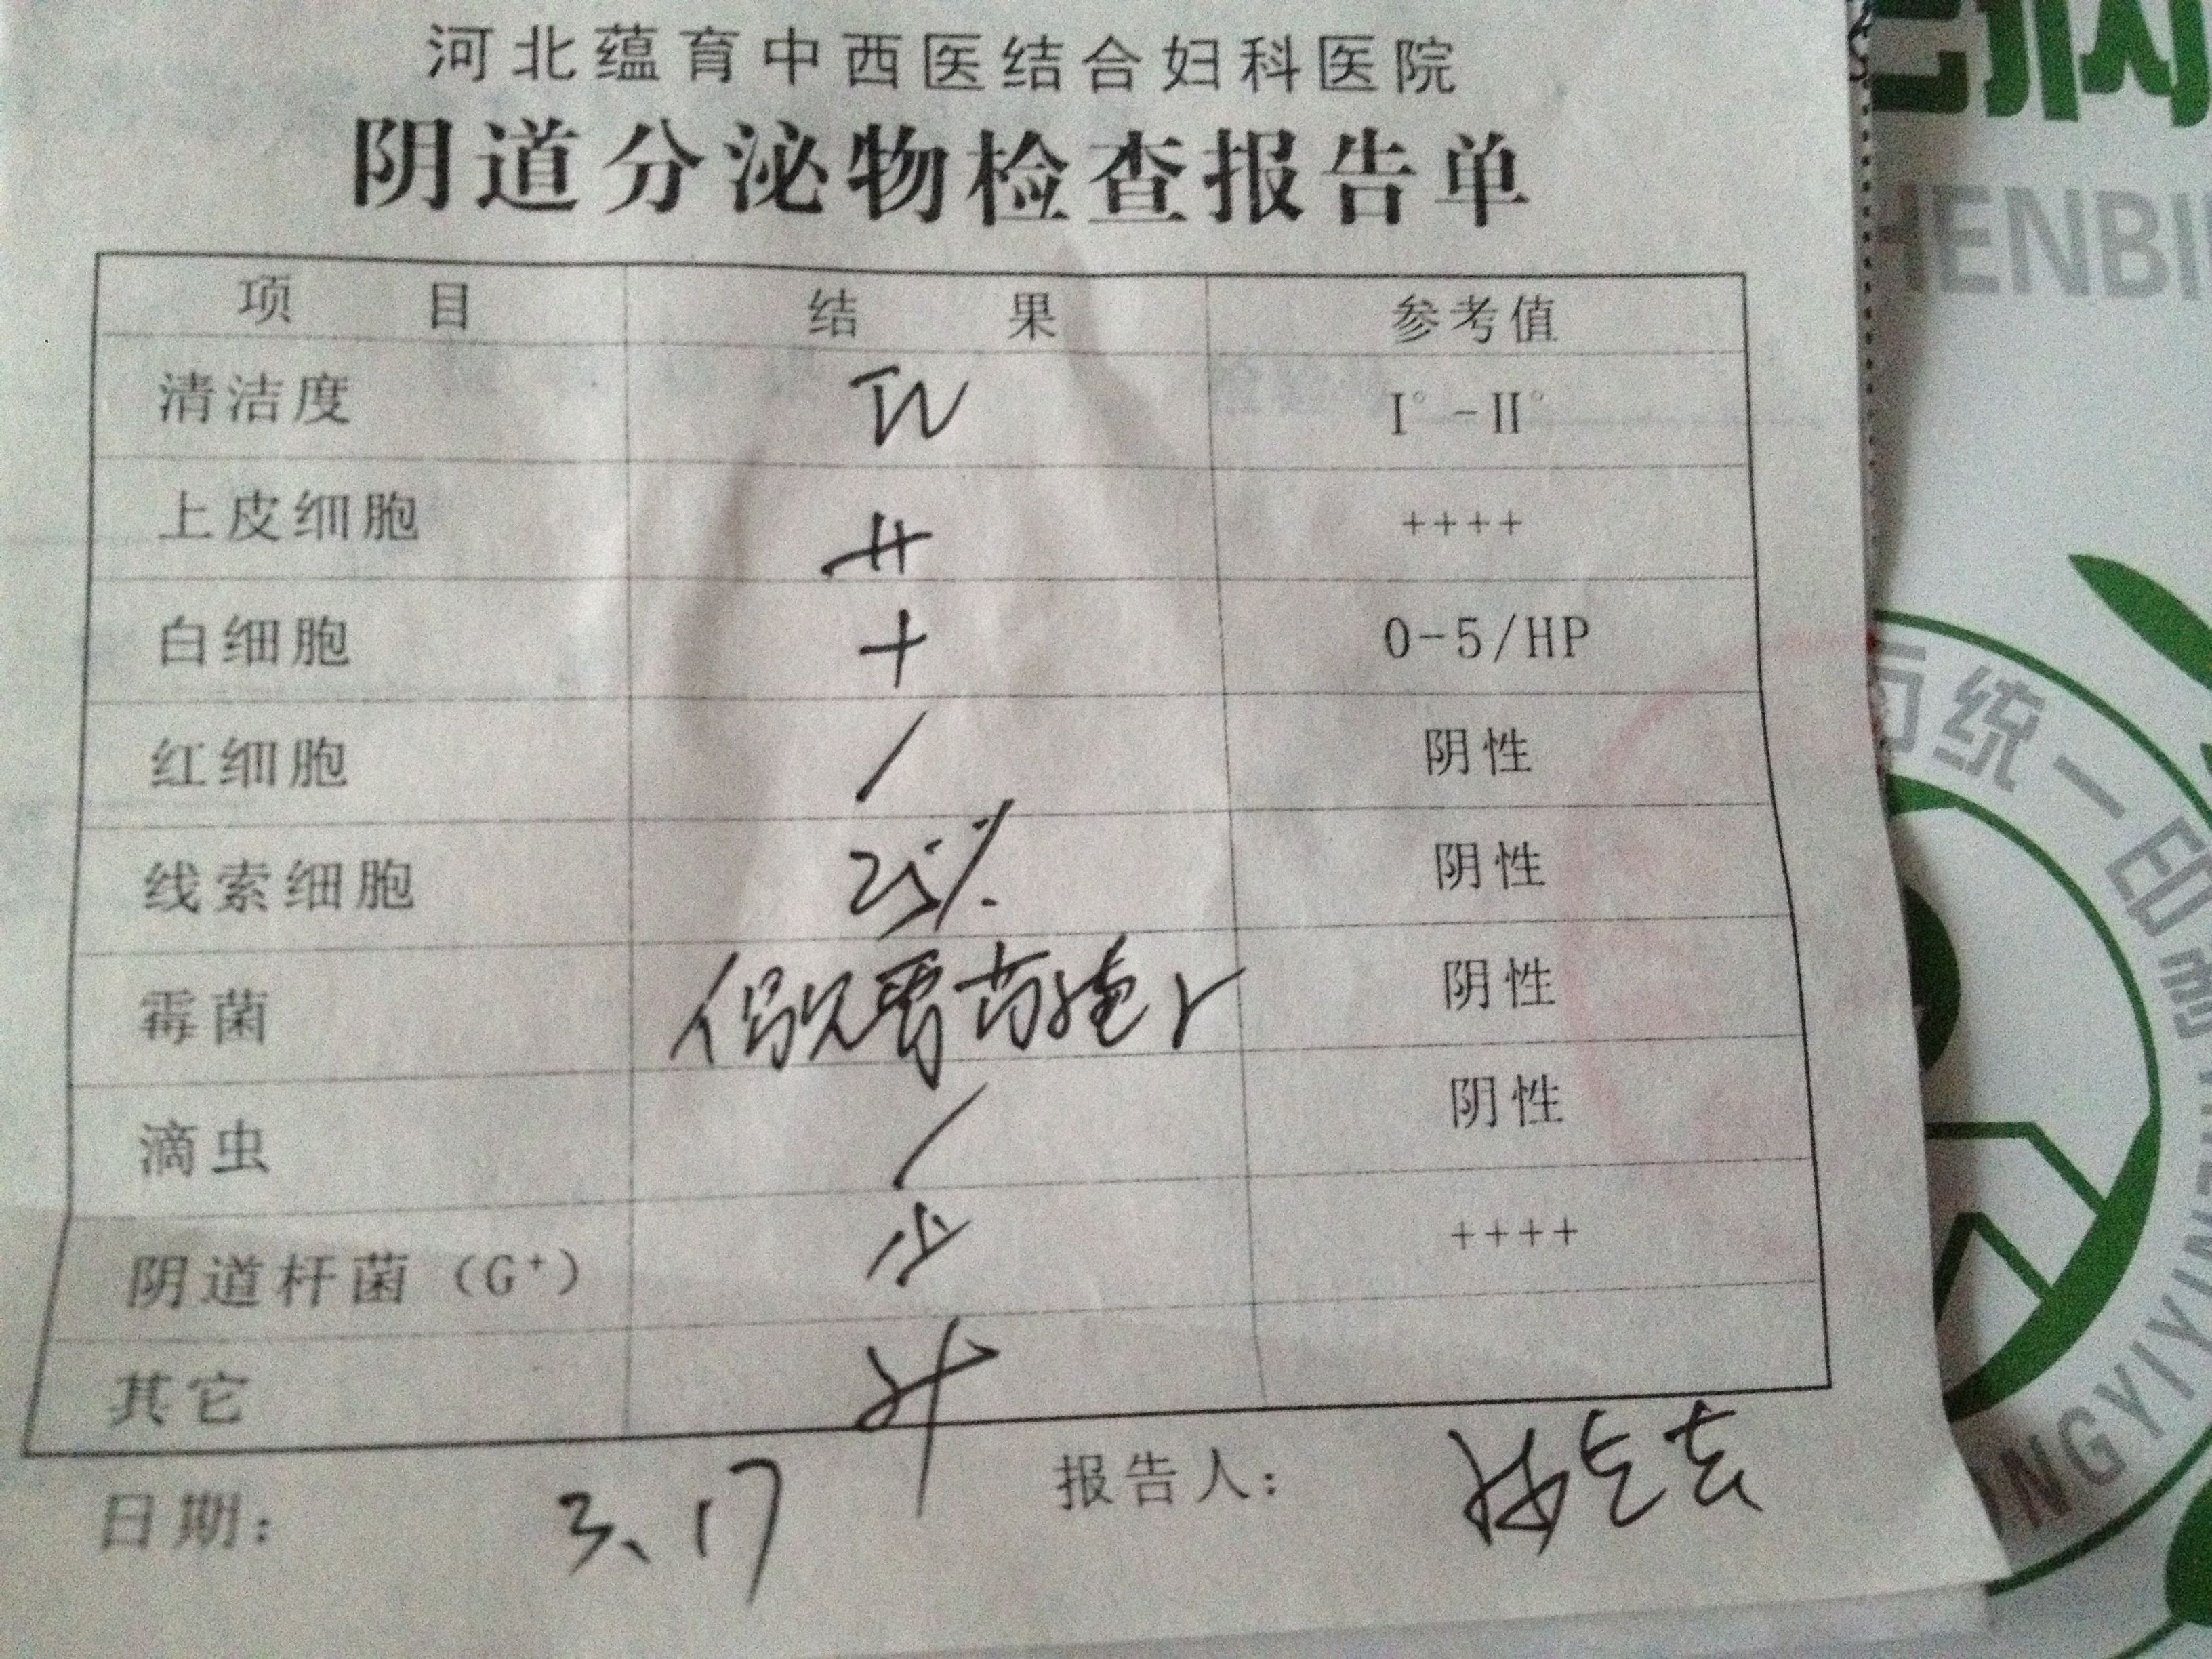 河北蕴育中西医结合妇科医院
阴道分泌物检查报告单
项 目 结 果 参考值
清洁度 IV I°-II°
上皮细胞 ++ ++++
白细胞 + 0-5/HP
红细胞 / 阴性
线索细胞 25% 阴性
霉菌 阴性
滴虫 / 阴性
阴道杆菌（G⁺） 少 ++++
其它
日期： 3.17 报告人：
HENBI
统一印
NGYIYIN